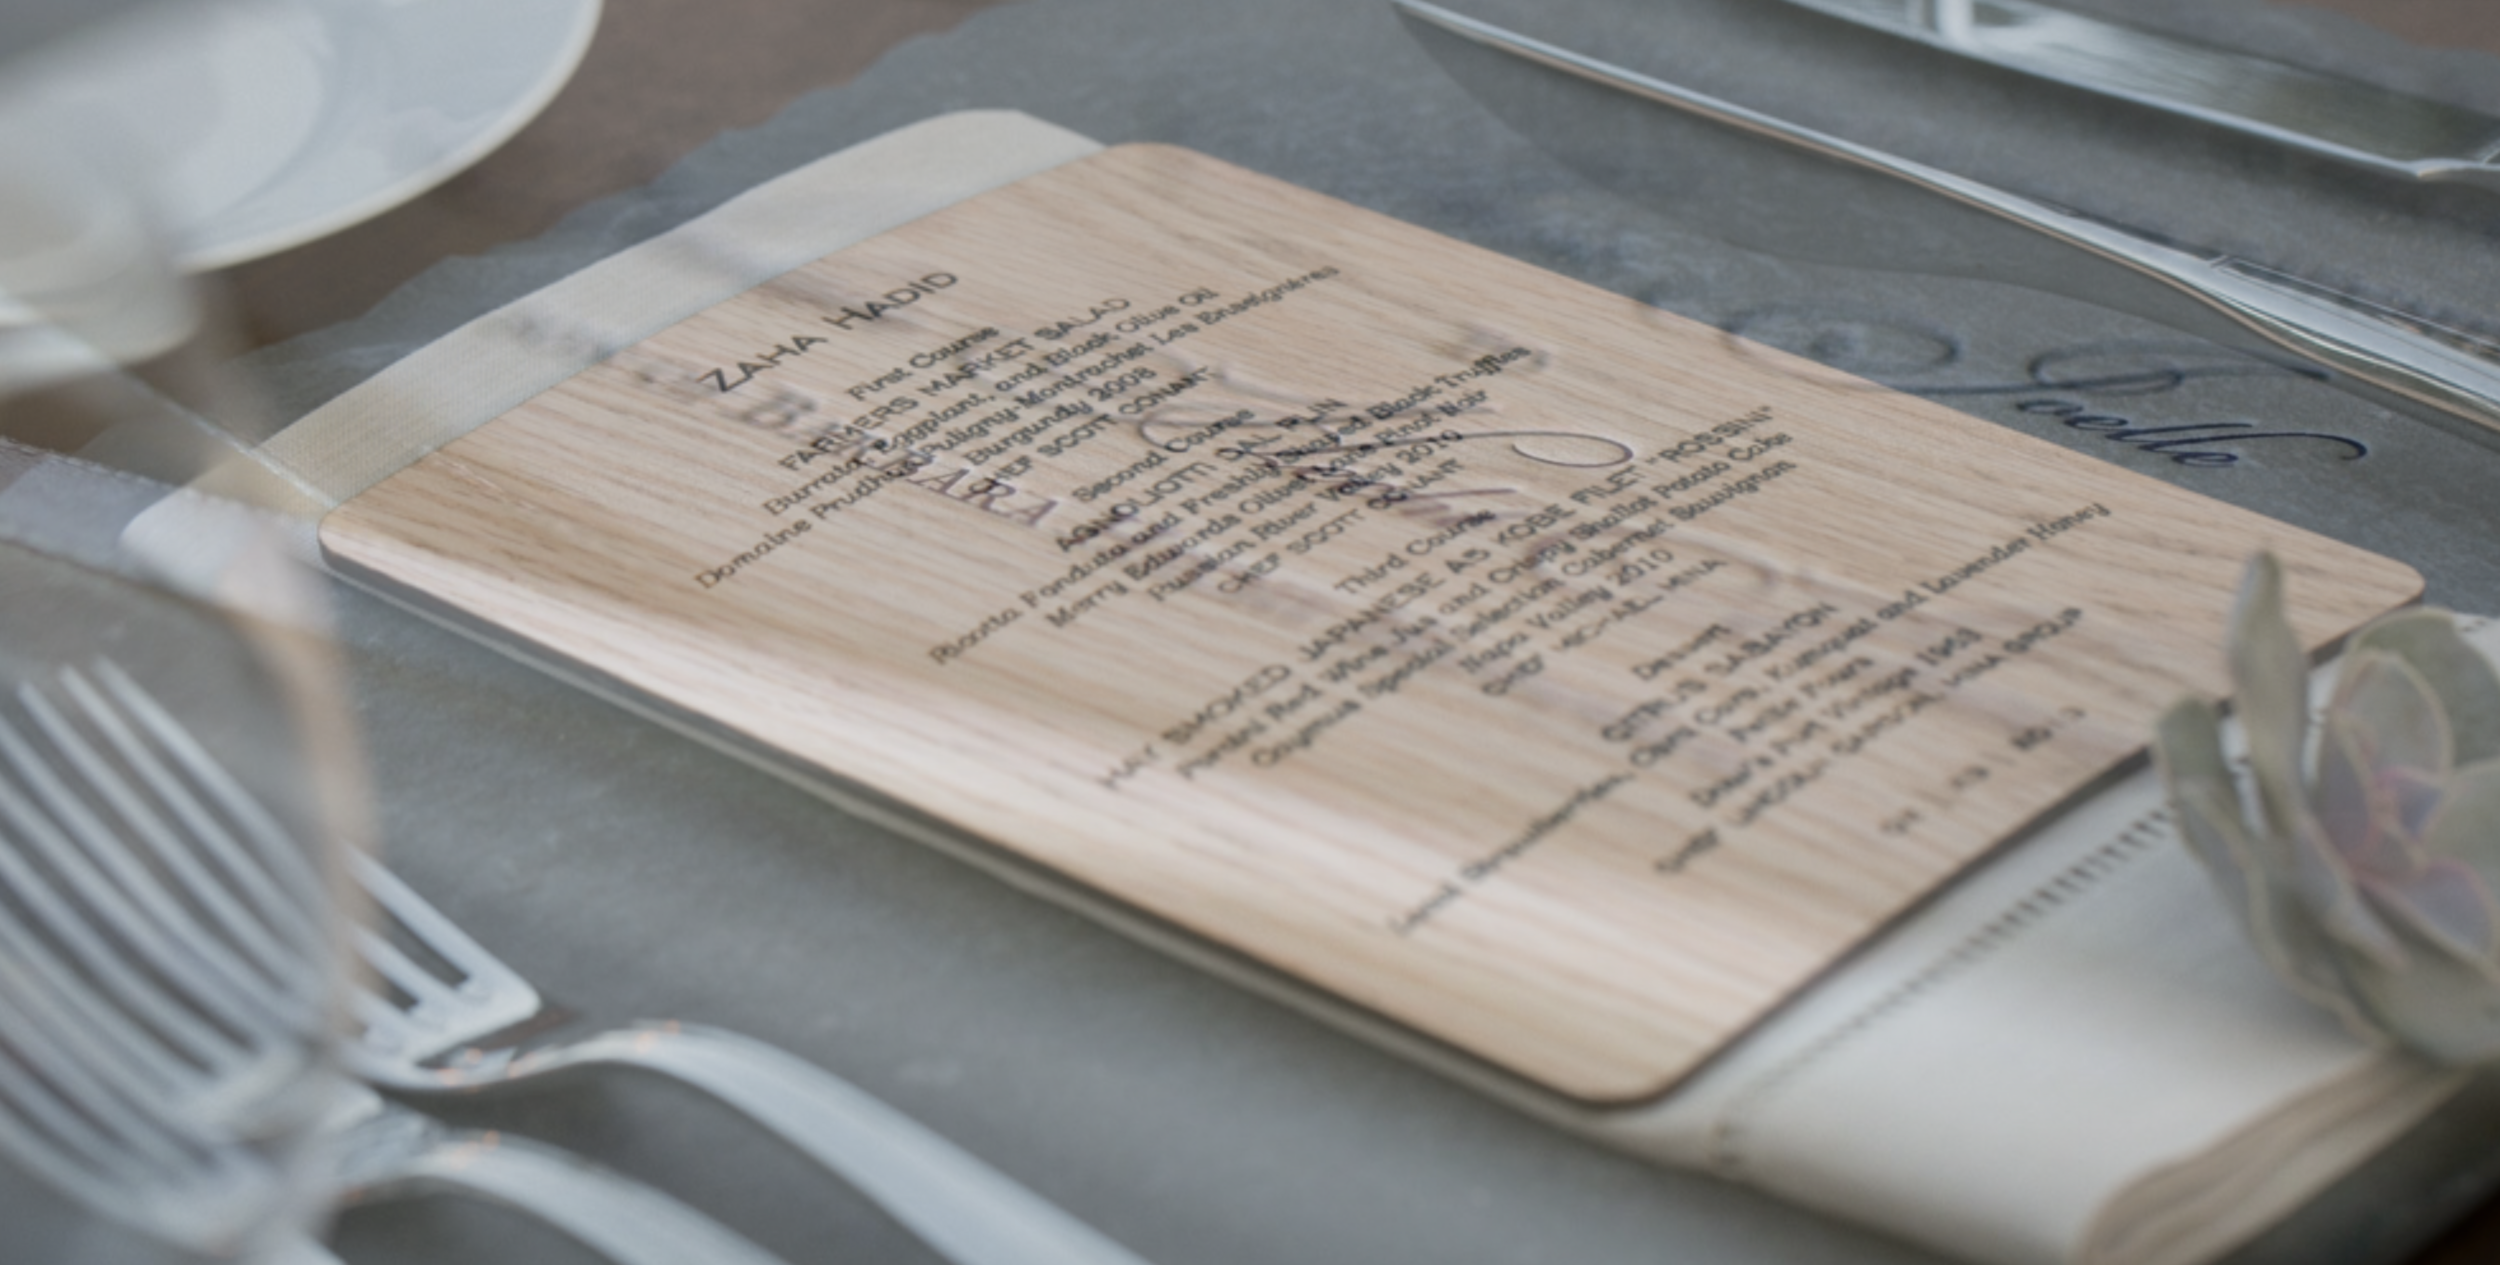 ZAHA HADID
First Course
FARMERS MARKET SALAD
Burrata, Eggplant, and Black Olive Oil
Domaine Prudhon Puligny-Montrachet Les Enseignères
Burgundy 2008
CHEF SCOTT CONANT
Second Course
AGNOLIOTTI DAL PLIN
Ricotta Fonduta and Freshly Black Truffles
Merry Edwards Olivet Pinot Noir
Russian River Valley 2010
CHEF SCOTT CONANT
Third Course
HAY SMOKED JAPANESE A5 KOBE FILET "ROSSINI"
Red Wine Jus and Crispy Shallot Potato Cake
Caymus Special Selection Cabernet Sauvignon
Napa Valley 2010
CHEF MICHAEL MINA
Dessert
CITRUS SABAYON
Strawberries, Kumquat and Lavender Honey
Petite Fours
Port Vintage 1963
CHEF LINCOLN CARSON, MINA GROUP
BARA
Joelle